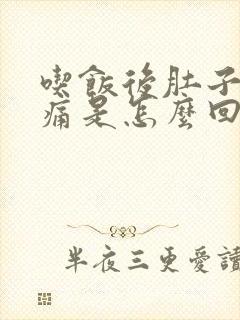 喫飯後肚子
痛是怎麼回
半夜三更愛讀